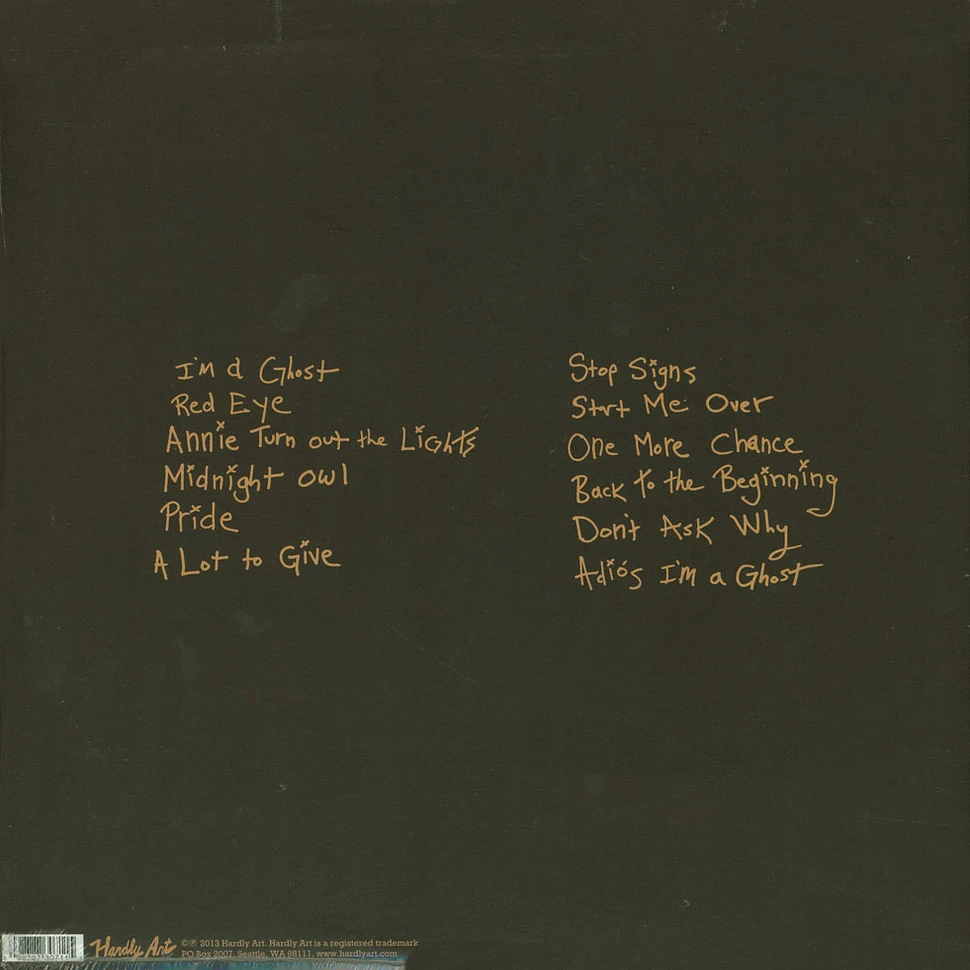 I'm a Ghost
Red Eye
Annie Turn out the Lights
Midnight Owl
Pride
A Lot to Give
Stop Signs
Start Me Over
One More Chance
Back to the Beginning
Don't Ask Why
Adiós I'm a Ghost
Hardly Art
©℗ 2013 Hardly Art. Hardly Art is a registered trademark
PO Box 2007, Seattle, WA 98111. www.hardlyart.com